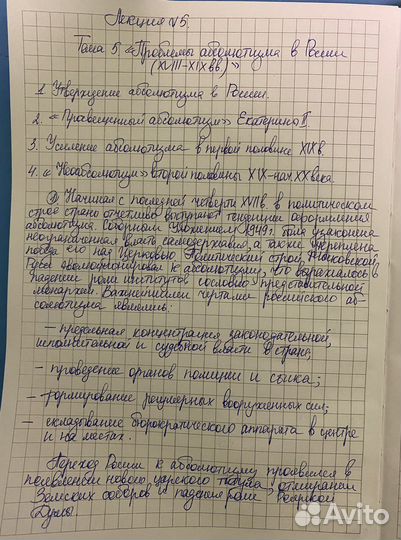 Лекция №5
Тема 5 «Проблемы абсолютизма в России
(XVIII-XIXвв.)»
1. Утверждение абсолютизма в России.
2. «Просвещенный абсолютизм» Екатерины II.
3. Усиление абсолютизма в первой половине XIXв.
4. «Неоабсолютизм» второй половины XIX-нач.XX века.
① Начиная с последней четверти XVIIв. в политическом
строе страны отчетливо выступают тенденции оформления
абсолютизма. Соборным Уложением 1949г. была узаконена
неограниченная власть самодержавия, а также укреплена
победа его над Церковью. Политический строй Московской
Руси эволюционировал к абсолютизму, что выражалось в
падении роли институтов сословно-представительной
монархии. Важнейшими чертами российского аб-
солютизма явились:
— предельная концентрация законодательной,
исполнительной и судебной власти в стране;
— проведение органов полиции и сыска;
— формирование регулярных вооруженных сил;
— складывание бюрократического аппарата в центре
и на местах.
Переход России к абсолютизму проявился в
появлении нового, царского титула, отмирании
Земских соборов и падения роли Боярской
Думы.
Avito